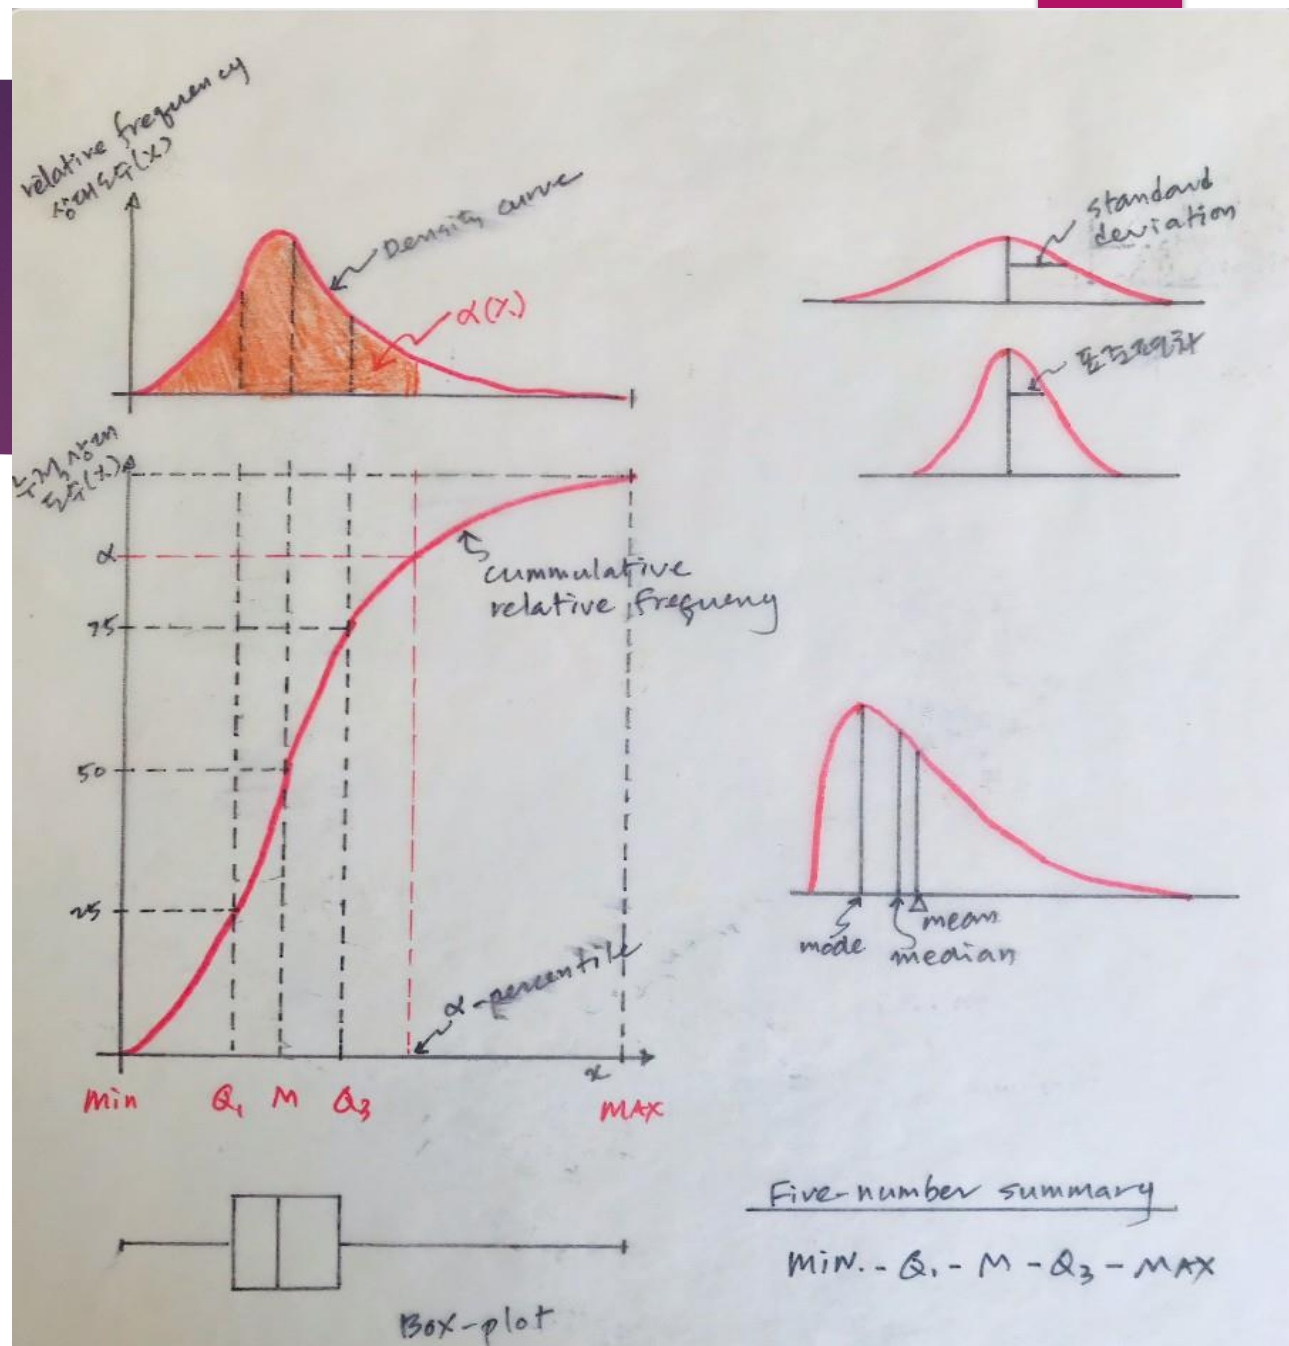 relative frequency
상대도수(%)
Density curve
α(%)
누적상대
도수(%)
α
75
50
25
cummulative
relative frequency
α-percentile
x
Min Q₁ M Q₃ MAX
Box-plot
standard
deviation
표준편차
mode
mean
median
Five-number summary
MiN. - Q₁ - M - Q₃ - MAX